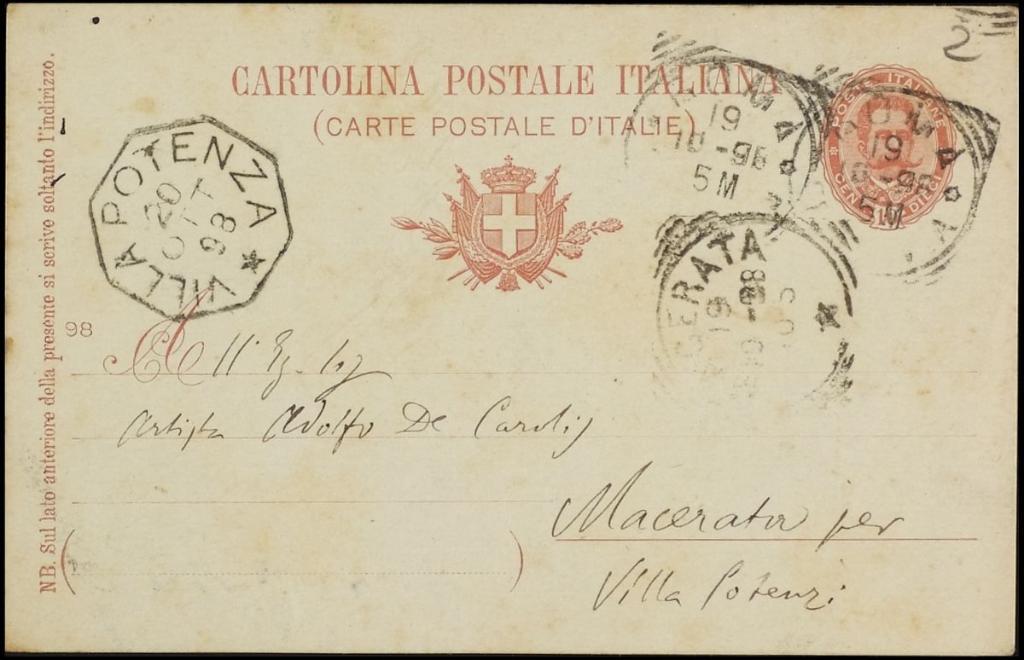 CARTOLINA POSTALE ITALIANA
(CARTE POSTALE D'ITALIE)
POSTE ITALIANE
2
ROMA
19
10-98
5M
ROMA
19
10-98
5M
VILLA POTENZA
20
OTT
98
MACERATA
19
98
98
NB. Sul lato anteriore della presente si scrive soltanto l'indirizzo.
All' Eg. Sig
Artista Adolfo De Carolis
Macerata per
Villa Potenza